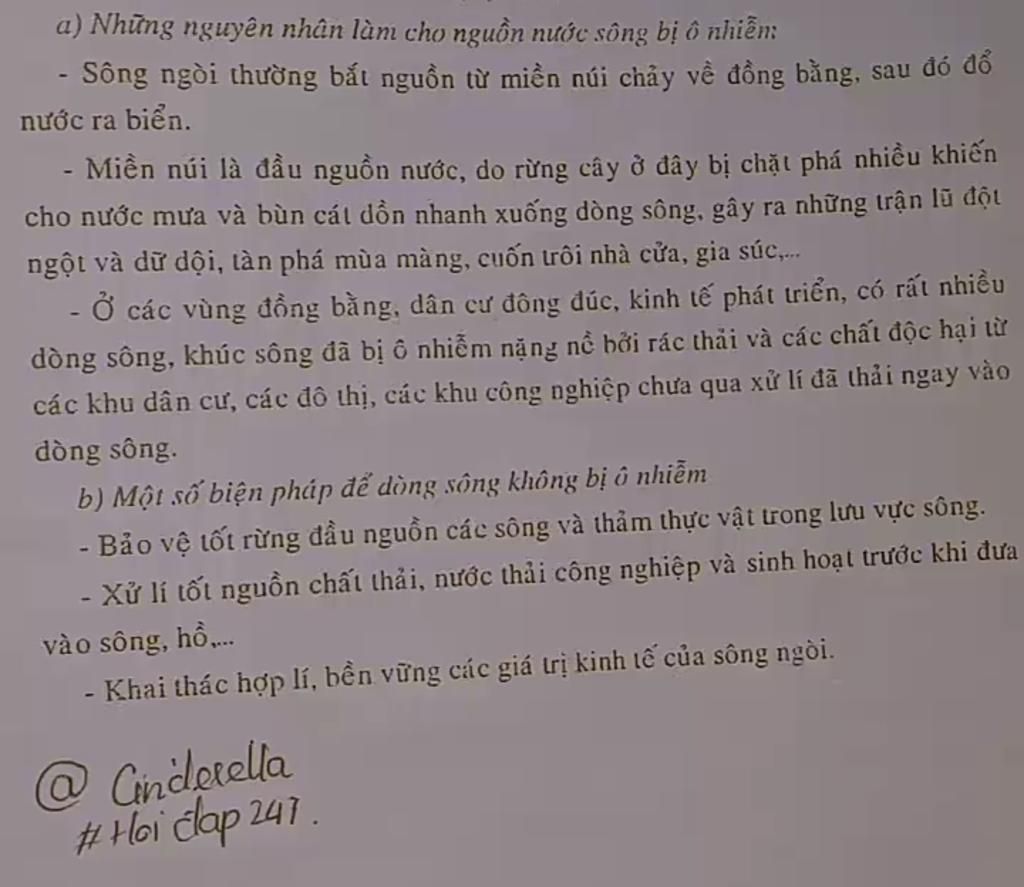 a) Những nguyên nhân làm cho nguồn nước sông bị ô nhiễm:
- Sông ngòi thường bắt nguồn từ miền núi chảy về đồng bằng, sau đó đổ
nước ra biển.
- Miền núi là đầu nguồn nước, do rừng cây ở đây bị chặt phá nhiều khiến
cho nước mưa và bùn cát dồn nhanh xuống dòng sông, gây ra những trận lũ đột
ngột và dữ dội, tàn phá mùa màng, cuốn trôi nhà cửa, gia súc,...
- Ở các vùng đồng bằng, dân cư đông đúc, kinh tế phát triển, có rất nhiều
dòng sông, khúc sông đã bị ô nhiễm nặng nề bởi rác thải và các chất độc hại từ
các khu dân cư, các đô thị, các khu công nghiệp chưa qua xử lí đã thải ngay vào
dòng sông.
b) Một số biện pháp để dòng sông không bị ô nhiễm
- Bảo vệ tốt rừng đầu nguồn các sông và thảm thực vật trong lưu vực sông.
- Xử lí tốt nguồn chất thải, nước thải công nghiệp và sinh hoạt trước khi đưa
vào sông, hồ,...
- Khai thác hợp lí, bền vững các giá trị kinh tế của sông ngòi.
@ Cinderella
# Hoi đap 247.